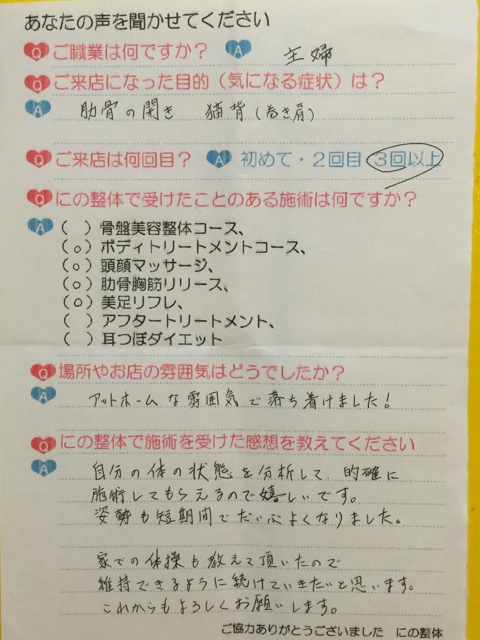 あなたの声を聞かせてください
Q ご職業は何ですか? A 主婦
Q ご来店になった目的(気になる症状)は?
A 肋骨の開き 猫背(巻き肩)
Q ご来店は何回目? A 初めて・2回目 3回以上
Q にの整体で受けたことのある施術は何ですか?
A ( ) 骨盤美容整体コース、
(○) ボディトリートメントコース、
(○) 頭顔マッサージ、
(○) 肋骨胸筋リリース、
(○) 美足リフレ、
( ) アフタートリートメント、
( ) 耳つぼダイエット
Q 場所やお店の雰囲気はどうでしたか?
A アットホームな雰囲気で落ち着けました!
Q にの整体で施術を受けた感想を教えてください
A 自分の体の状態を分析して、的確に
施術してもらえるので嬉しいです。
姿勢も短期間でだいぶよくなりました。
家での体操も教えて頂いたので
維持できるように続けていきたいと思います。
これからもよろしくお願いします。
ご協力ありがとうございました にの整体